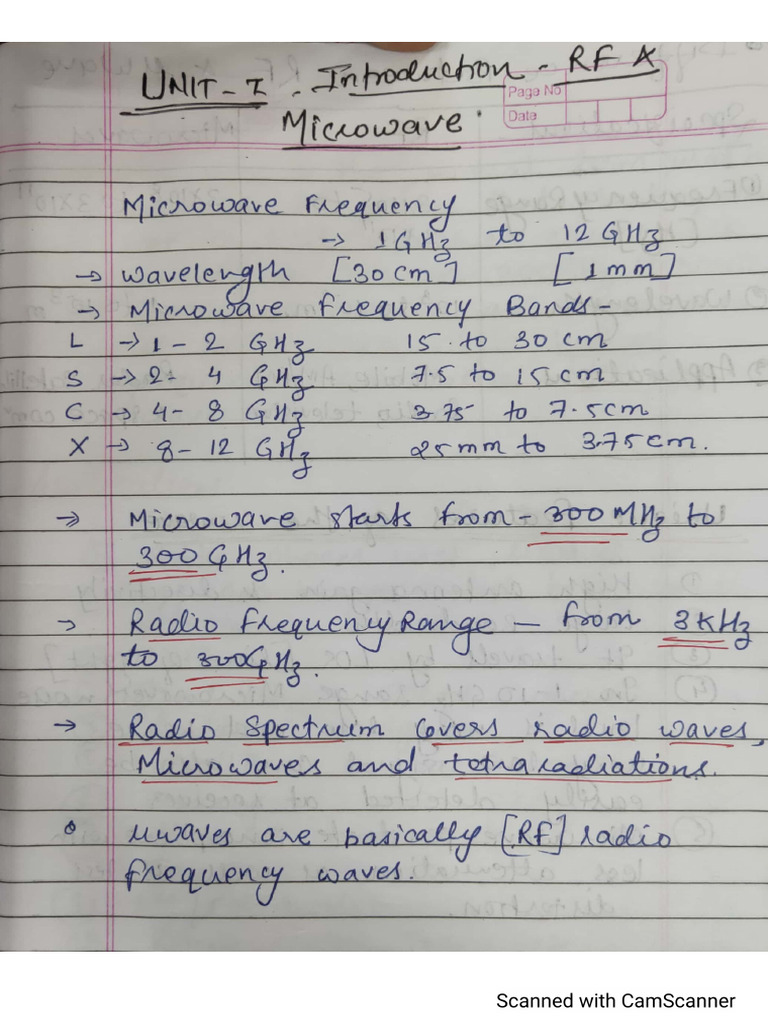 UNIT-I. Introduction - RF &
Page No
Date
Microwave.
Microwave Frequency
→ 1 GHz to 12 GHz
→ wavelength [30 cm] [1 mm]
→ Microwave Frequency Bands-
L → 1 - 2 GHz 15 to 30 cm
S → 2 - 4 GHz 7.5 to 15 cm
C → 4 - 8 GHz 3.75 to 7.5cm
X → 8 - 12 GHz 25 mm to 3.75 cm.
→ Microwave starts from - 300 MHz to
300 GHz.
→ Radio Frequency Range - from 3 KHz
to 300GHz.
→ Radio Spectrum covers radio waves,
Microwaves and totra radiations.
• μwaves are basically [RF] radio
frequency waves.
Scanned with CamScanner